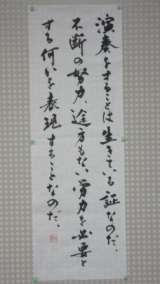 演奏をすることは生きている証なのだ、
不断の努力、途方もない労力を必要と
する何かを表現することなのだ。